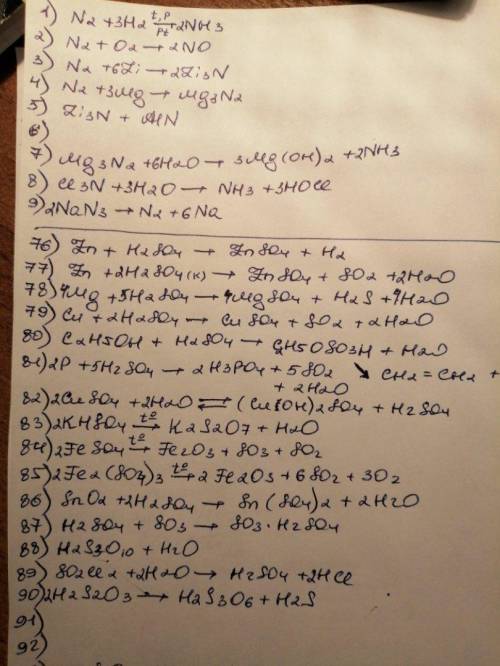 1) N2 + 3H2 t,p/Pt → 2NH3
2) N2 + O2 → 2NO
3) N2 + 6Li → 2Li3N
4) N2 + 3Mg → Mg3N2
5) Li3N + AlN
6)
7) Mg3N2 + 6H2O → 3Mg(OH)2 + 2NH3
8) Cl3N + 3H2O → NH3 + 3HOCl
9) 2NaN3 → N2 + 6Na
76) Zn + H2SO4 → ZnSO4 + H2
77) Zn + 2H2SO4(к) → ZnSO4 + SO2 + 2H2O
78) 4Mg + 5H2SO4 → 4MgSO4 + H2S + 4H2O
79) Cu + 2H2SO4 → CuSO4 + SO2 + 2H2O
80) C2H5OH + H2SO4 → C2H5OSO3H + H2O
↘ CH2=CH2 +
81) 2P + 5H2SO4 → 2H3PO4 + 5SO2
+ 2H2O
82) 2CuSO4 + 2H2O ⇄ (CuOH)2SO4 + H2SO4
83) 2KHSO4 t° → K2S2O7 + H2O
84) 2FeSO4 t° → Fe2O3 + SO3 + SO2
85) 2Fe2(SO4)3 t° → 2Fe2O3 + 6SO2 + 3O2
86) SnO2 + 2H2SO4 → Sn(SO4)2 + 2H2O
87) H2SO4 + SO3 → SO3·H2SO4
88) H2S3O10 + H2O
89) SO2Cl2 + 2H2O → H2SO4 + 2HCl
90) 2H2S2O3 → H2S3O6 + H2S
91)
92)